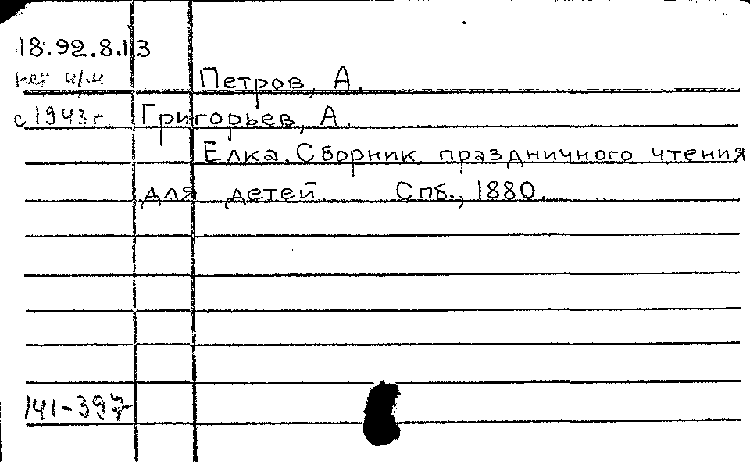 18.92.8.13
нет н/м Петров, А.
с 1943 г. Григорьев, А.
Елка. Сборник праздничного чтения
для детей. Спб., 1880.
141-397